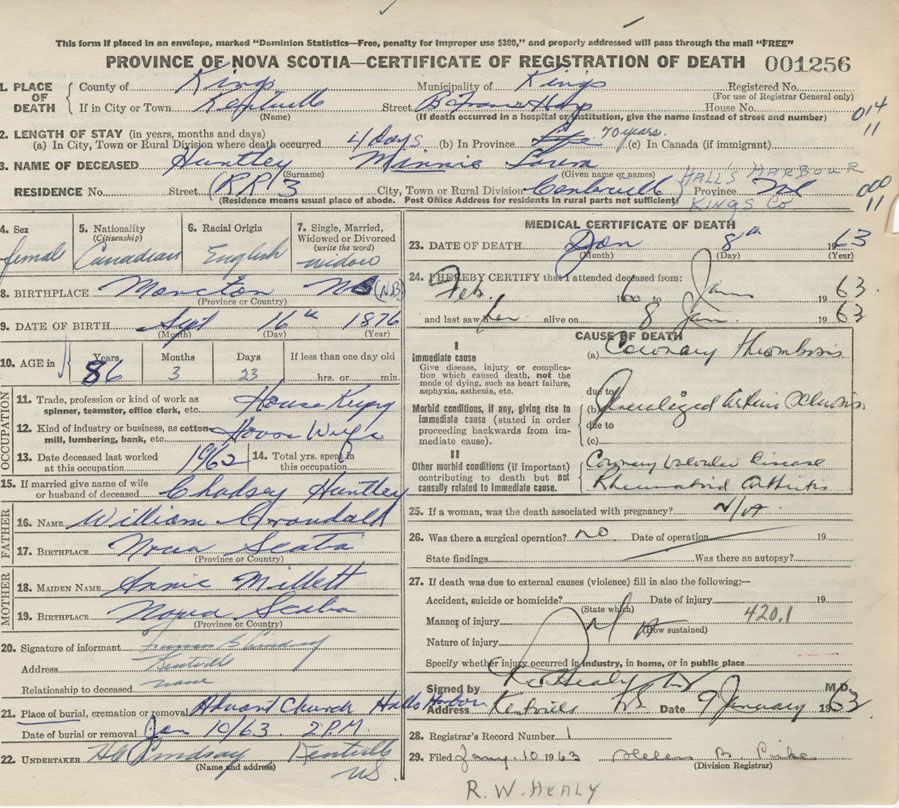 This form if placed in an envelope, marked "Dominion Statistics—Free, penalty for improper use $300," and properly addressed will pass through the mail "FREE"
PROVINCE OF NOVA SCOTIA—CERTIFICATE OF REGISTRATION OF DEATH 001256
1. PLACE OF DEATH
County of Kings Municipality of Kings Registered No.
(For use of Registrar General only)
If in City or Town Kentville Street House No.
(Name) (If death occurred in a hospital or institution, give the name instead of street and number)
014
11
2. LENGTH OF STAY (in years, months and days)
(a) In City, Town or Rural Division where death occurred 4 days (b) In Province Life 70 years. (c) In Canada (if immigrant)
3. NAME OF DECEASED Huntley Minnie
(Surname) (Given name or names)
HALL'S HARBOUR
KINGS CO
RESIDENCE No. Street (RR 3 City, Town or Rural Division Centreville Province NS
(Residence means usual place of abode. Post Office Address for residents in rural parts not sufficient)
000
11
4. Sex
female
5. Nationality
(Citizenship)
Canadian
6. Racial Origin
English
7. Single, Married, Widowed or Divorced
(write the word)
widow
8. BIRTHPLACE Moncton NB (N.B)
(Province or Country)
9. DATE OF BIRTH Sept 16th 1876
(Month) (Day) (Year)
10. AGE in
Years Months Days If less than one day old
86 3 23 hrs. or min.
OCCUPATION
11. Trade, profession or kind of work as
spinner, teamster, office clerk, etc.
12. Kind of industry or business, as cotton
mill, lumbering, bank, etc. House Wife
13. Date deceased last worked
at this occupation 1962
14. Total yrs. spent in
this occupation
15. If married give name of wife
or husband of deceased Chadsey Huntley
FATHER
16. NAME William Crandall
17. BIRTHPLACE Nova Scota
(Province or Country)
MOTHER
18. MAIDEN NAME Annie Millett
19. BIRTHPLACE Nova Scota
(Province or Country)
20. Signature of informant Lindsay
Address Kentville
Relationship to deceased none
21. Place of burial, cremation or removal Advent Church Halls Harbor
Date of burial or removal Jan 10/63 2 P.M.
22. UNDERTAKER Lindsay Kentville
NS
(Name and address)
MEDICAL CERTIFICATE OF DEATH
23. DATE OF DEATH Jan 8th 1963
(Month) (Day)
24. I HEREBY CERTIFY that I attended deceased from:
Feb. 1960 to Jan 1963.
and last saw her alive on 8 Jan. 1963
CAUSE OF DEATH
I
Immediate cause
Give disease, injury or complication which caused death, not the mode of dying, such as heart failure, asphyxia, asthenia, etc.
(a) Coronary Thrombosis
due to
Morbid conditions, if any, giving rise to immediate cause (stated in order proceeding backwards from immediate cause).
(b) Generalized Arterio Sclerosis
due to
(c)
II
Other morbid conditions (if important) contributing to death but not causally related to immediate cause.
Coronary Valvular Disease
Rheumatoid Arthritis
25. If a woman, was the death associated with pregnancy? N/A
26. Was there a surgical operation? no Date of operation 19
State findings Was there an autopsy?
27. If death was due to external causes (violence) fill in also the following:—
Accident, suicide or homicide? Date of injury 19
(State which)
Manner of injury 420.1
(How sustained)
Nature of injury
Specify whether injury occurred in industry, in home, or in public place
Signed by RW Healy M.D.
Address Kentville NS Date 9 January 1963.
28. Registrar's Record Number 1
29. Filed Jany. 10 1963 Helen B.
(Division Registrar)
R. W. HEALY